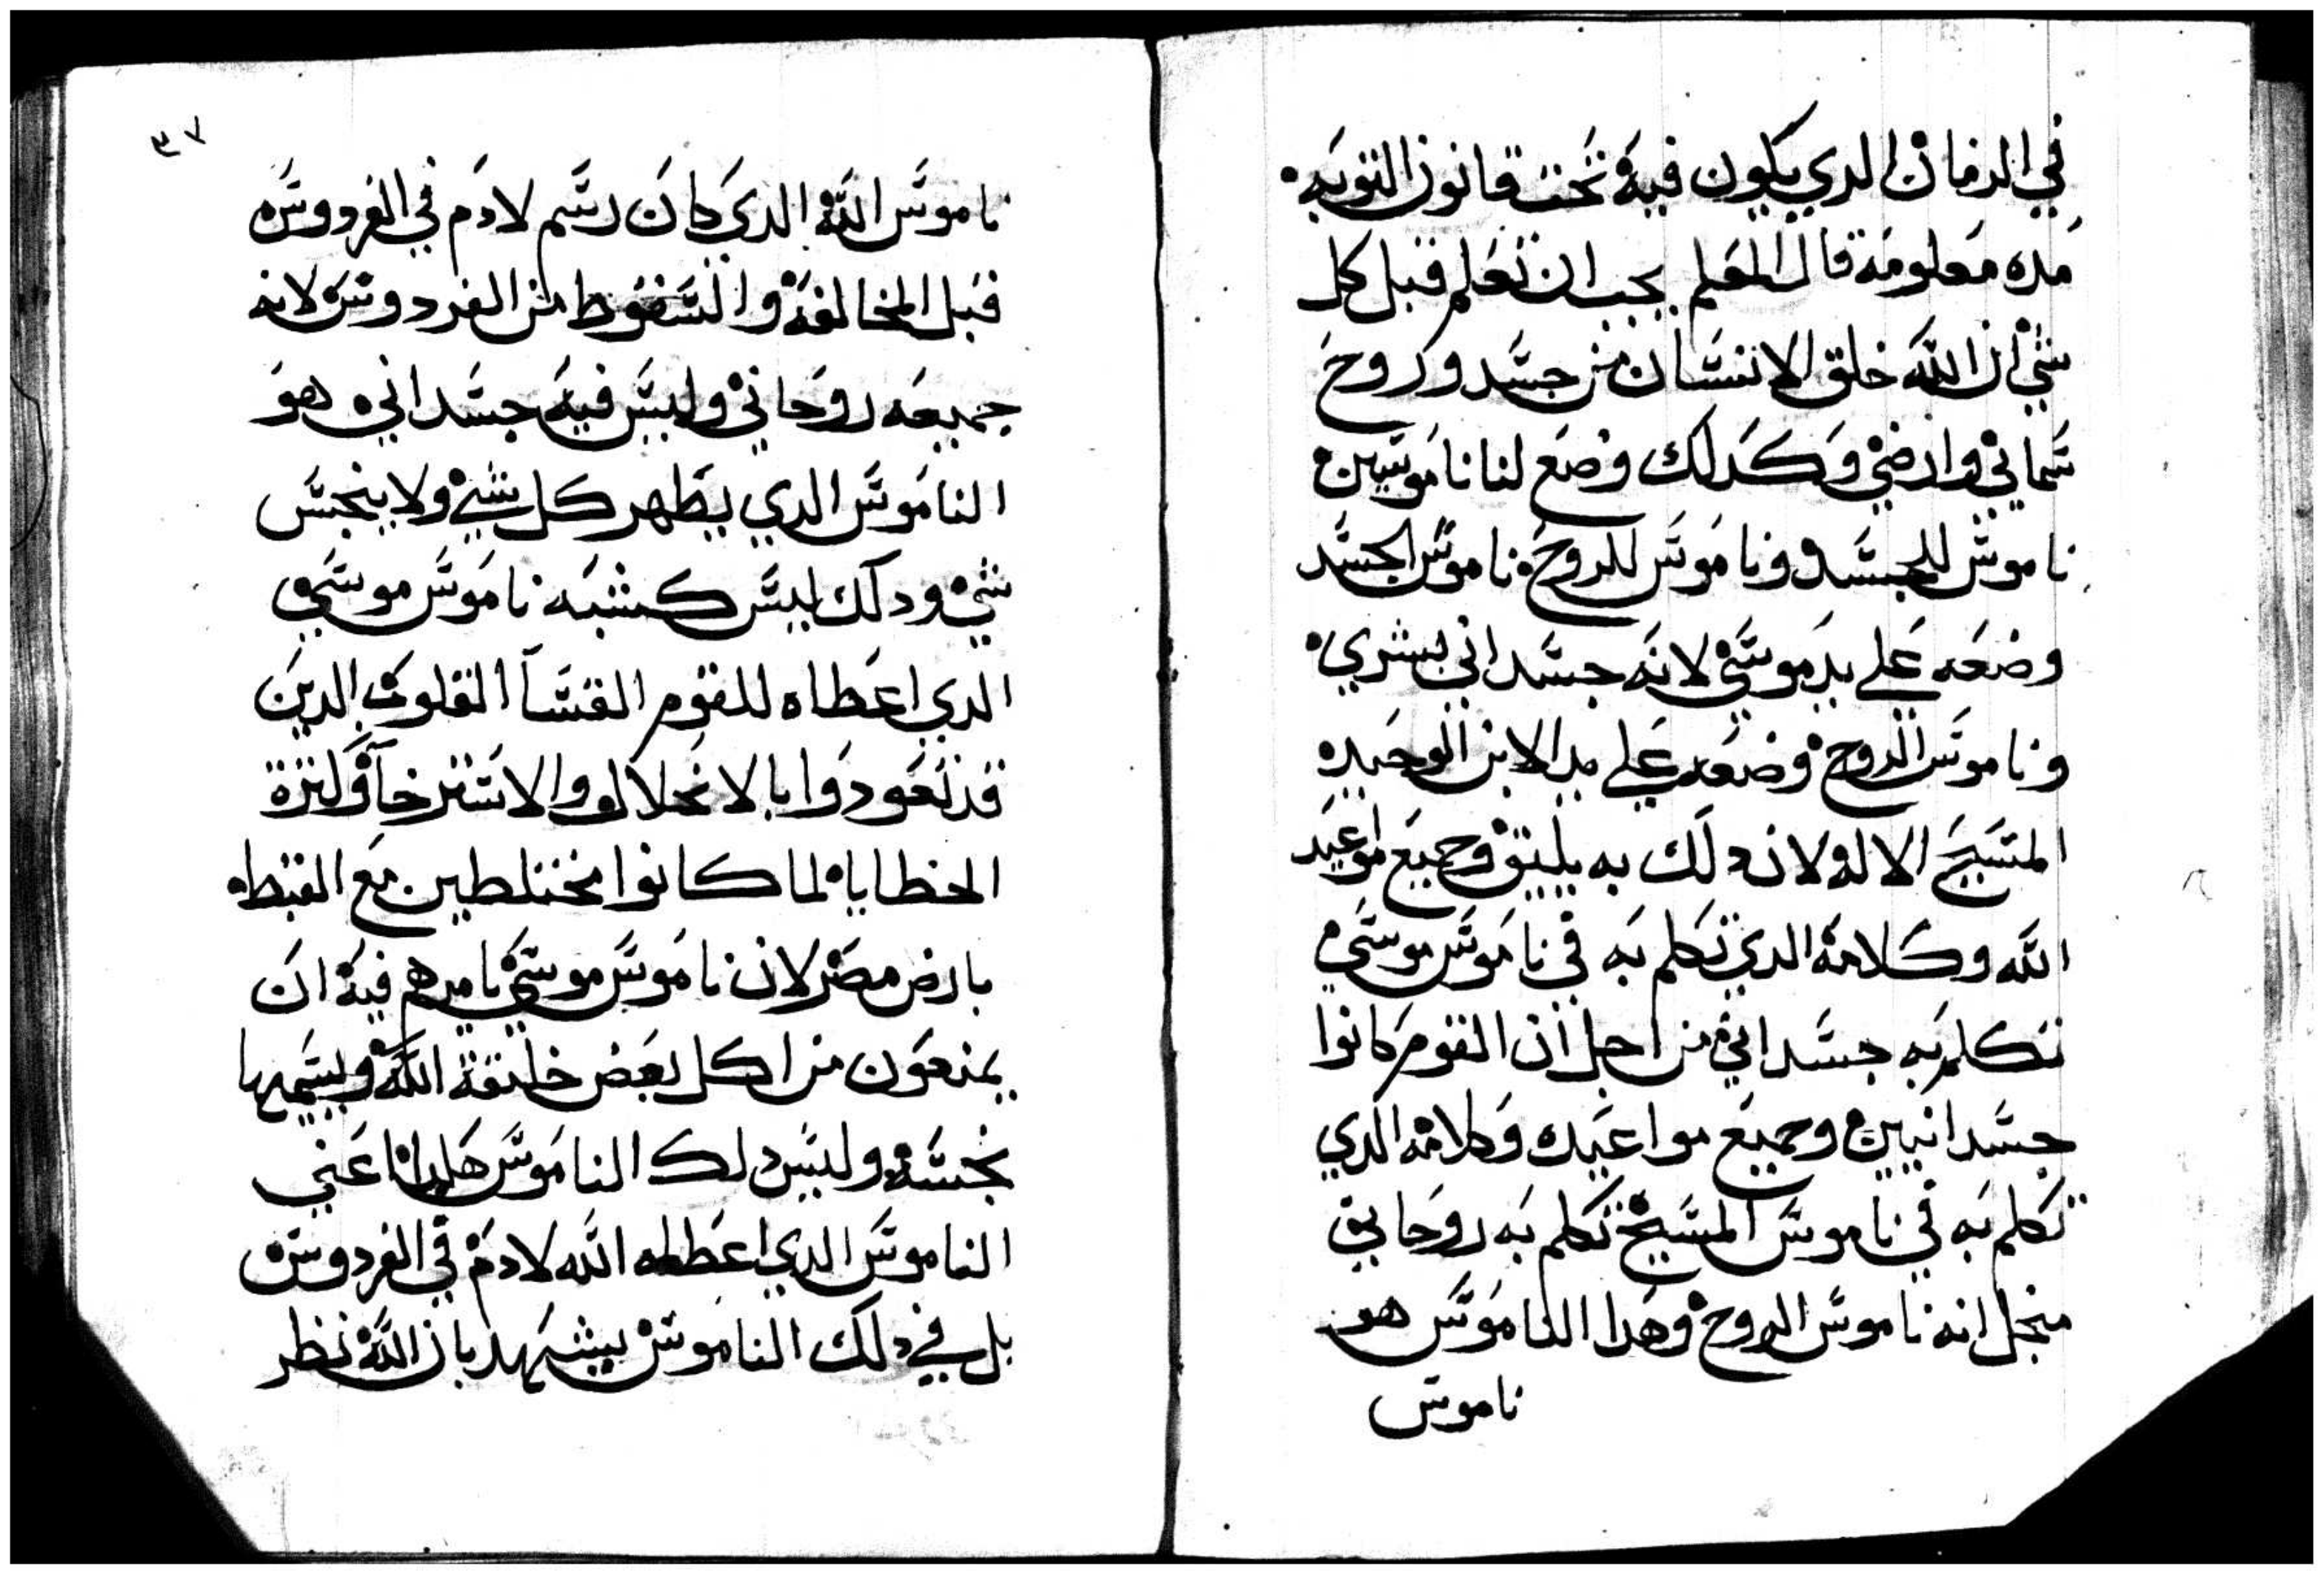 في الزمان الدي يكون فيه تحت قانون التوبه
مده معلومة قال المعلم يجب ان تعلم قبل كل
شي ان الله خلق الانسان من جسد وروح
سماني وارضي وكدلك وضع لنا ناموسين
ناموس للجسد وناموس للروح ناموس الجسد
وضعه علي يد موسي لانه جسداني بشري
وناموس الروح وضعه علي يد الابن الوحيد
المسيح الاله لان دلك به يليق وجميع مواعيد
الله وكلامه الدي تكلم به في ناموس موسي
تكلم به جسداني من اجل ان القوم كانوا
جسدانيين وجميع مواعيده وكلامه الدي
تكلم به في ناموس المسيح تكلم به روحاني
منجل انه ناموس الروح وهدا الناموس هو
ناموس
٣٧
ناموس الله الدي كان رسم لادم في الفردوس
قبل المخالفة والسقوط من الفردوس لانه
جميعه روحاني وليس فيه جسداني هو
الناموس الدي يطهر كل شي ولا ينجس
شي ودلك ليس كشبه ناموس موسي
الدي اعطاه للقوم القسآ القلوب الدين
قد تعودوا بالانحلال والاسترخآ وكترة
الخطايا لما كانوا مختلطين مع القبط
بارض مصر لان ناموس موسي يامرهم فيه ان
يمنعون من اكل بعض خليقة الله ويسميها
نجسه وليس دلك الناموس هكدا اعني
الناموس الدي اعطاه الله لادم في الفردوس
بل في دلك الناموس يشهد بان الله نظر